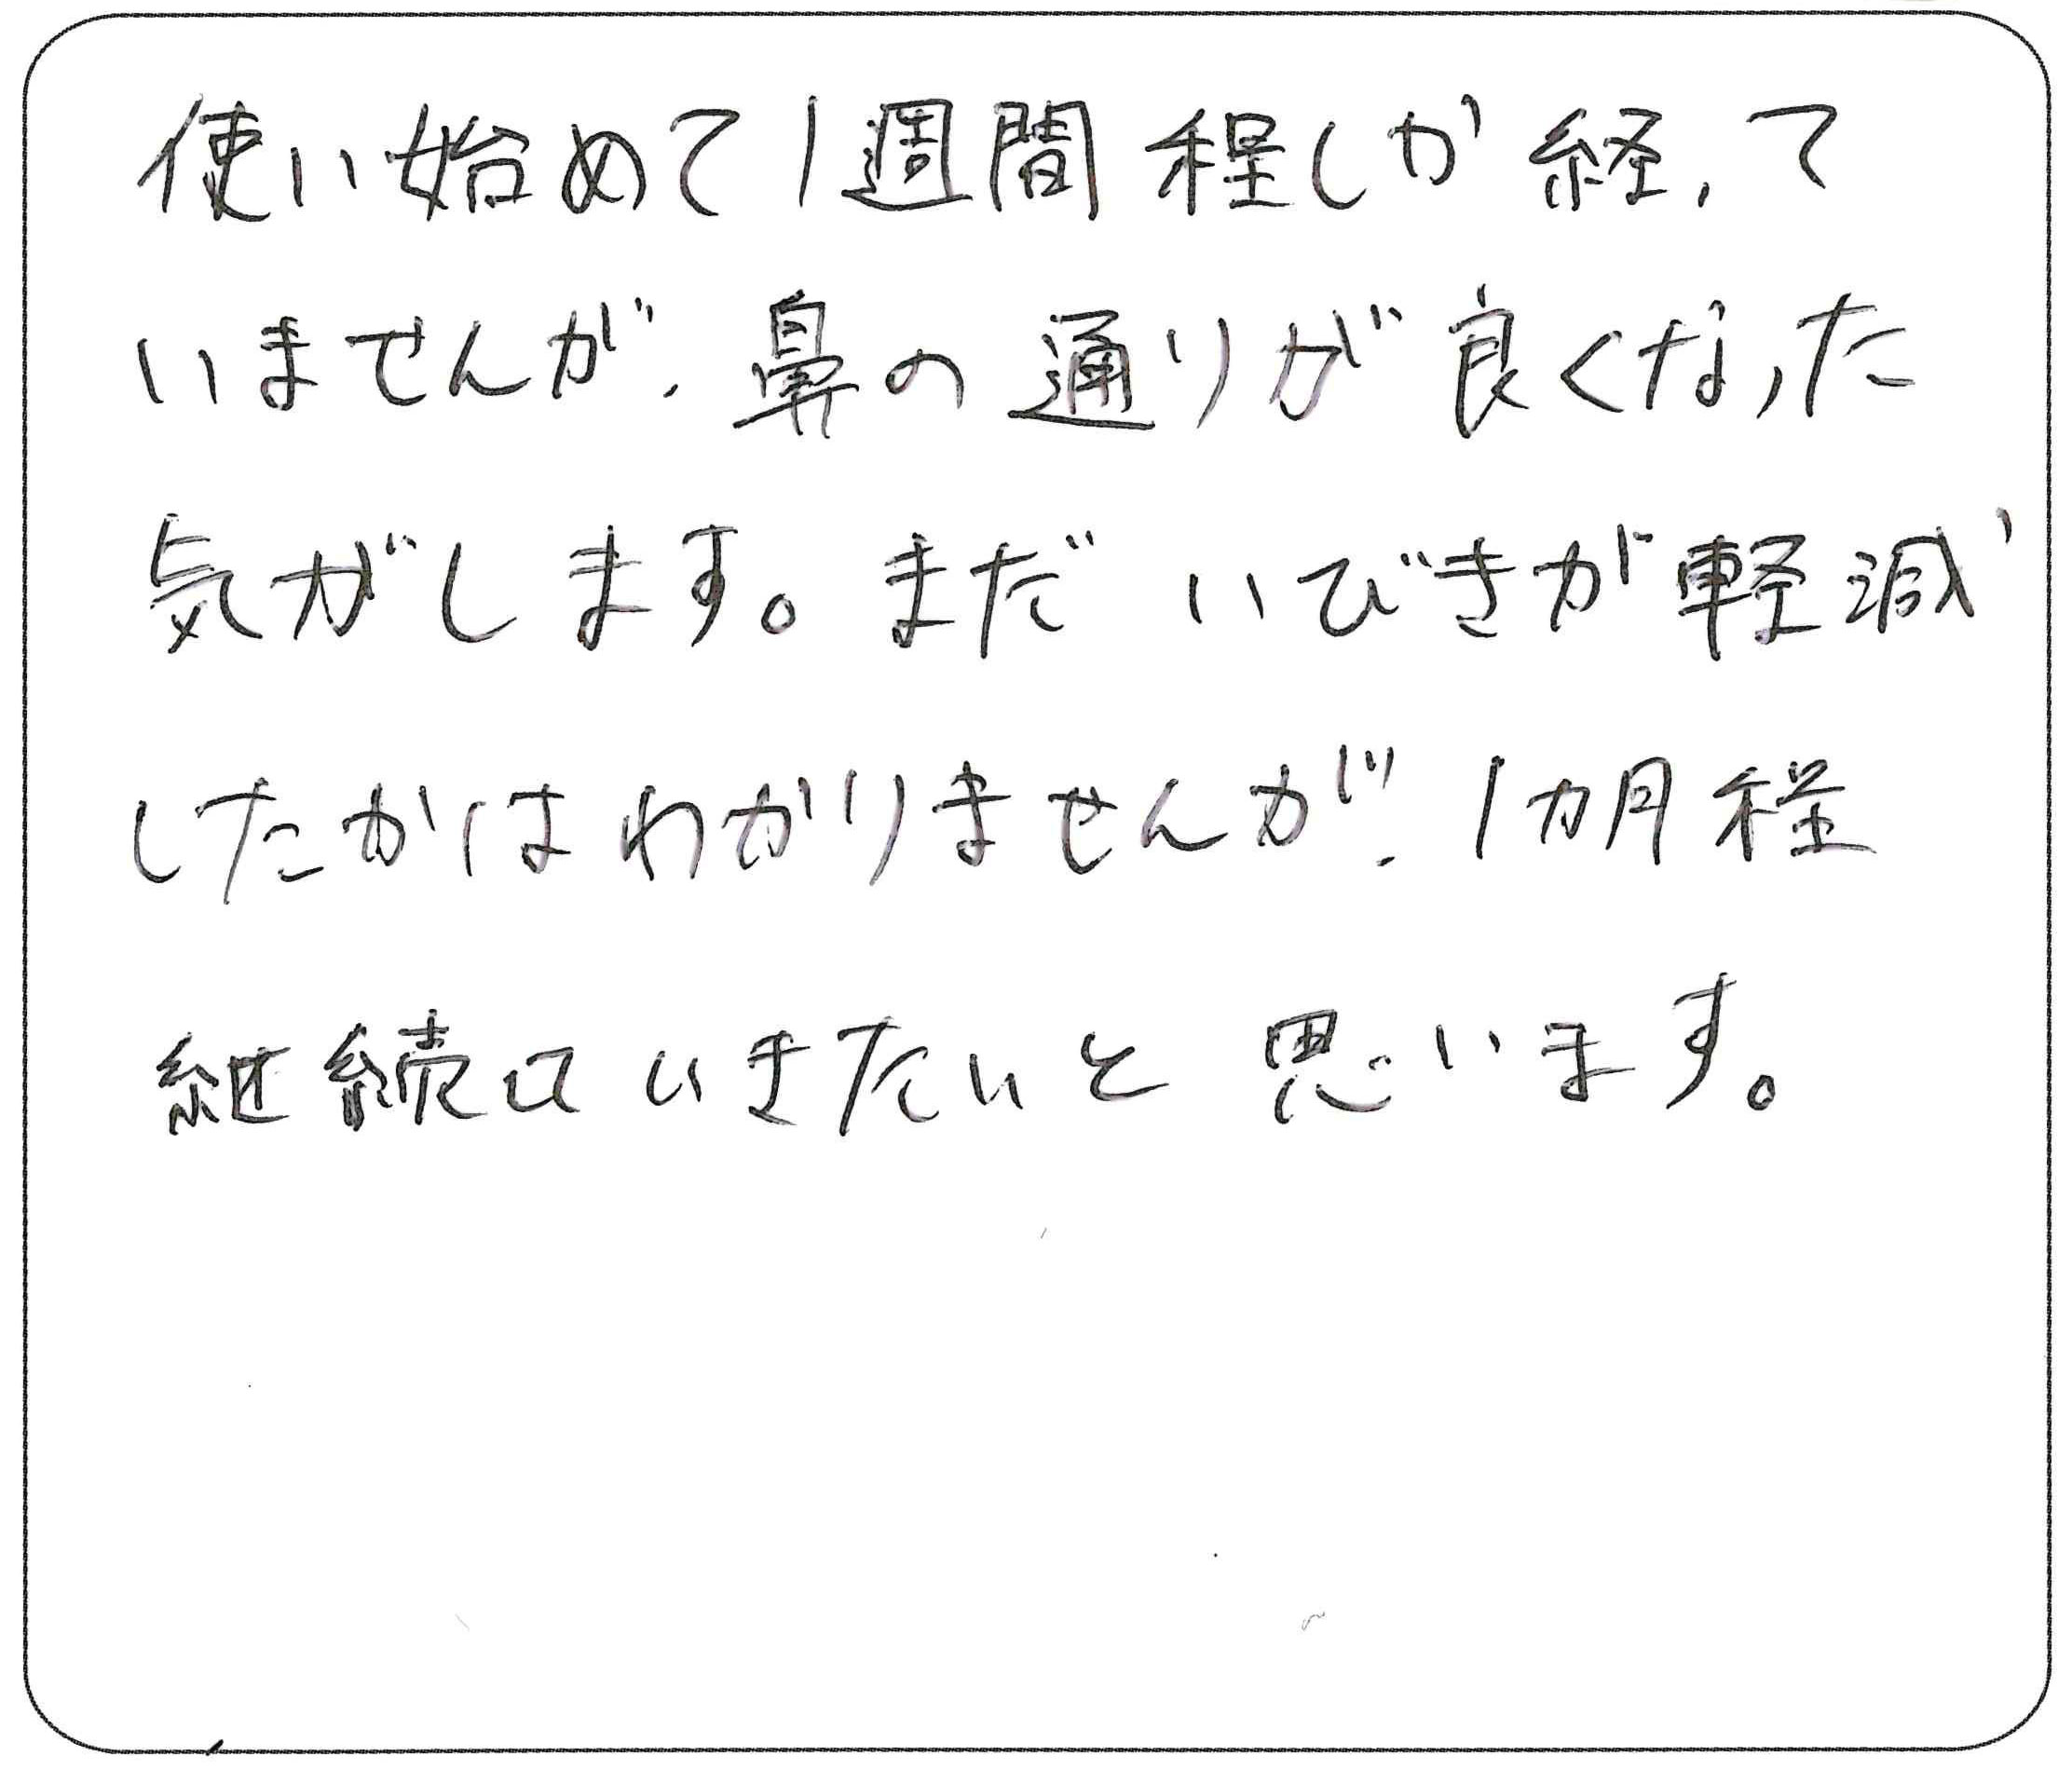 使い始めて1週間程しか経って
いませんが、鼻の通りが良くなった
気がします。まだいびきが軽減
したかはわかりませんが、1カ月程
継続していきたいと思います。